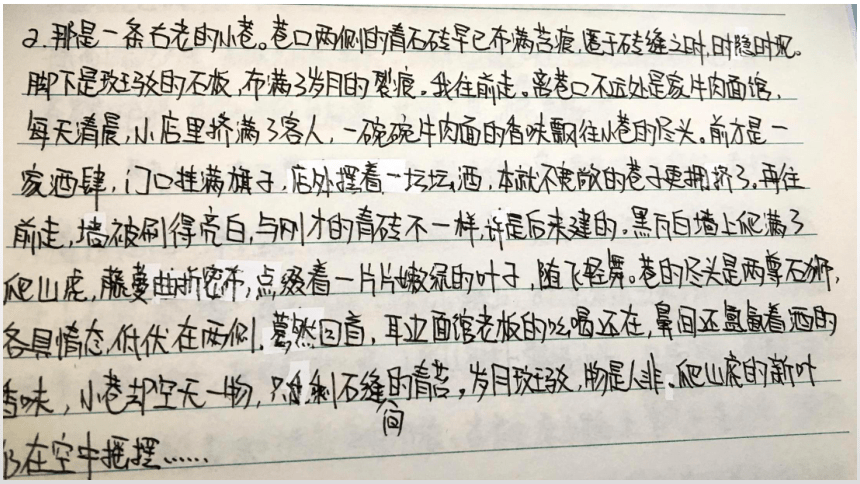 2.那是一条古老的小巷。巷口两侧的青石砖早已布满苔痕,匿于砖缝之时,时隐时现。
脚下是斑驳的石板,布满了岁月的裂痕。我住前走。离巷口不远处是家牛肉面馆,
每天清晨,小店里挤满了客人,一碗碗牛肉面的香味飘往小巷的尽头。前方是一
家酒肆,门口挂满旗子,店外摆着一坛坛酒,本就不宽敞的巷子更拥挤了。再往
前走,墙被刷得亮白,与刚才的青砖不一样,许是后来建的。黑瓦白墙上爬满了
爬山虎,藤蔓曲折密布,点缀着一片片嫩绿的叶子,随飞轻舞。巷的尽头是两尊石狮,
各具情态,低伏在两侧。蓦然回首,耳边面馆老板的吆喝还在,鼻间还氤氲着酒的
香味,小巷却空无一物,只剩石缝间的青苔。岁月斑驳,物是人非。爬山虎的新叶
仍在空中摇摆……